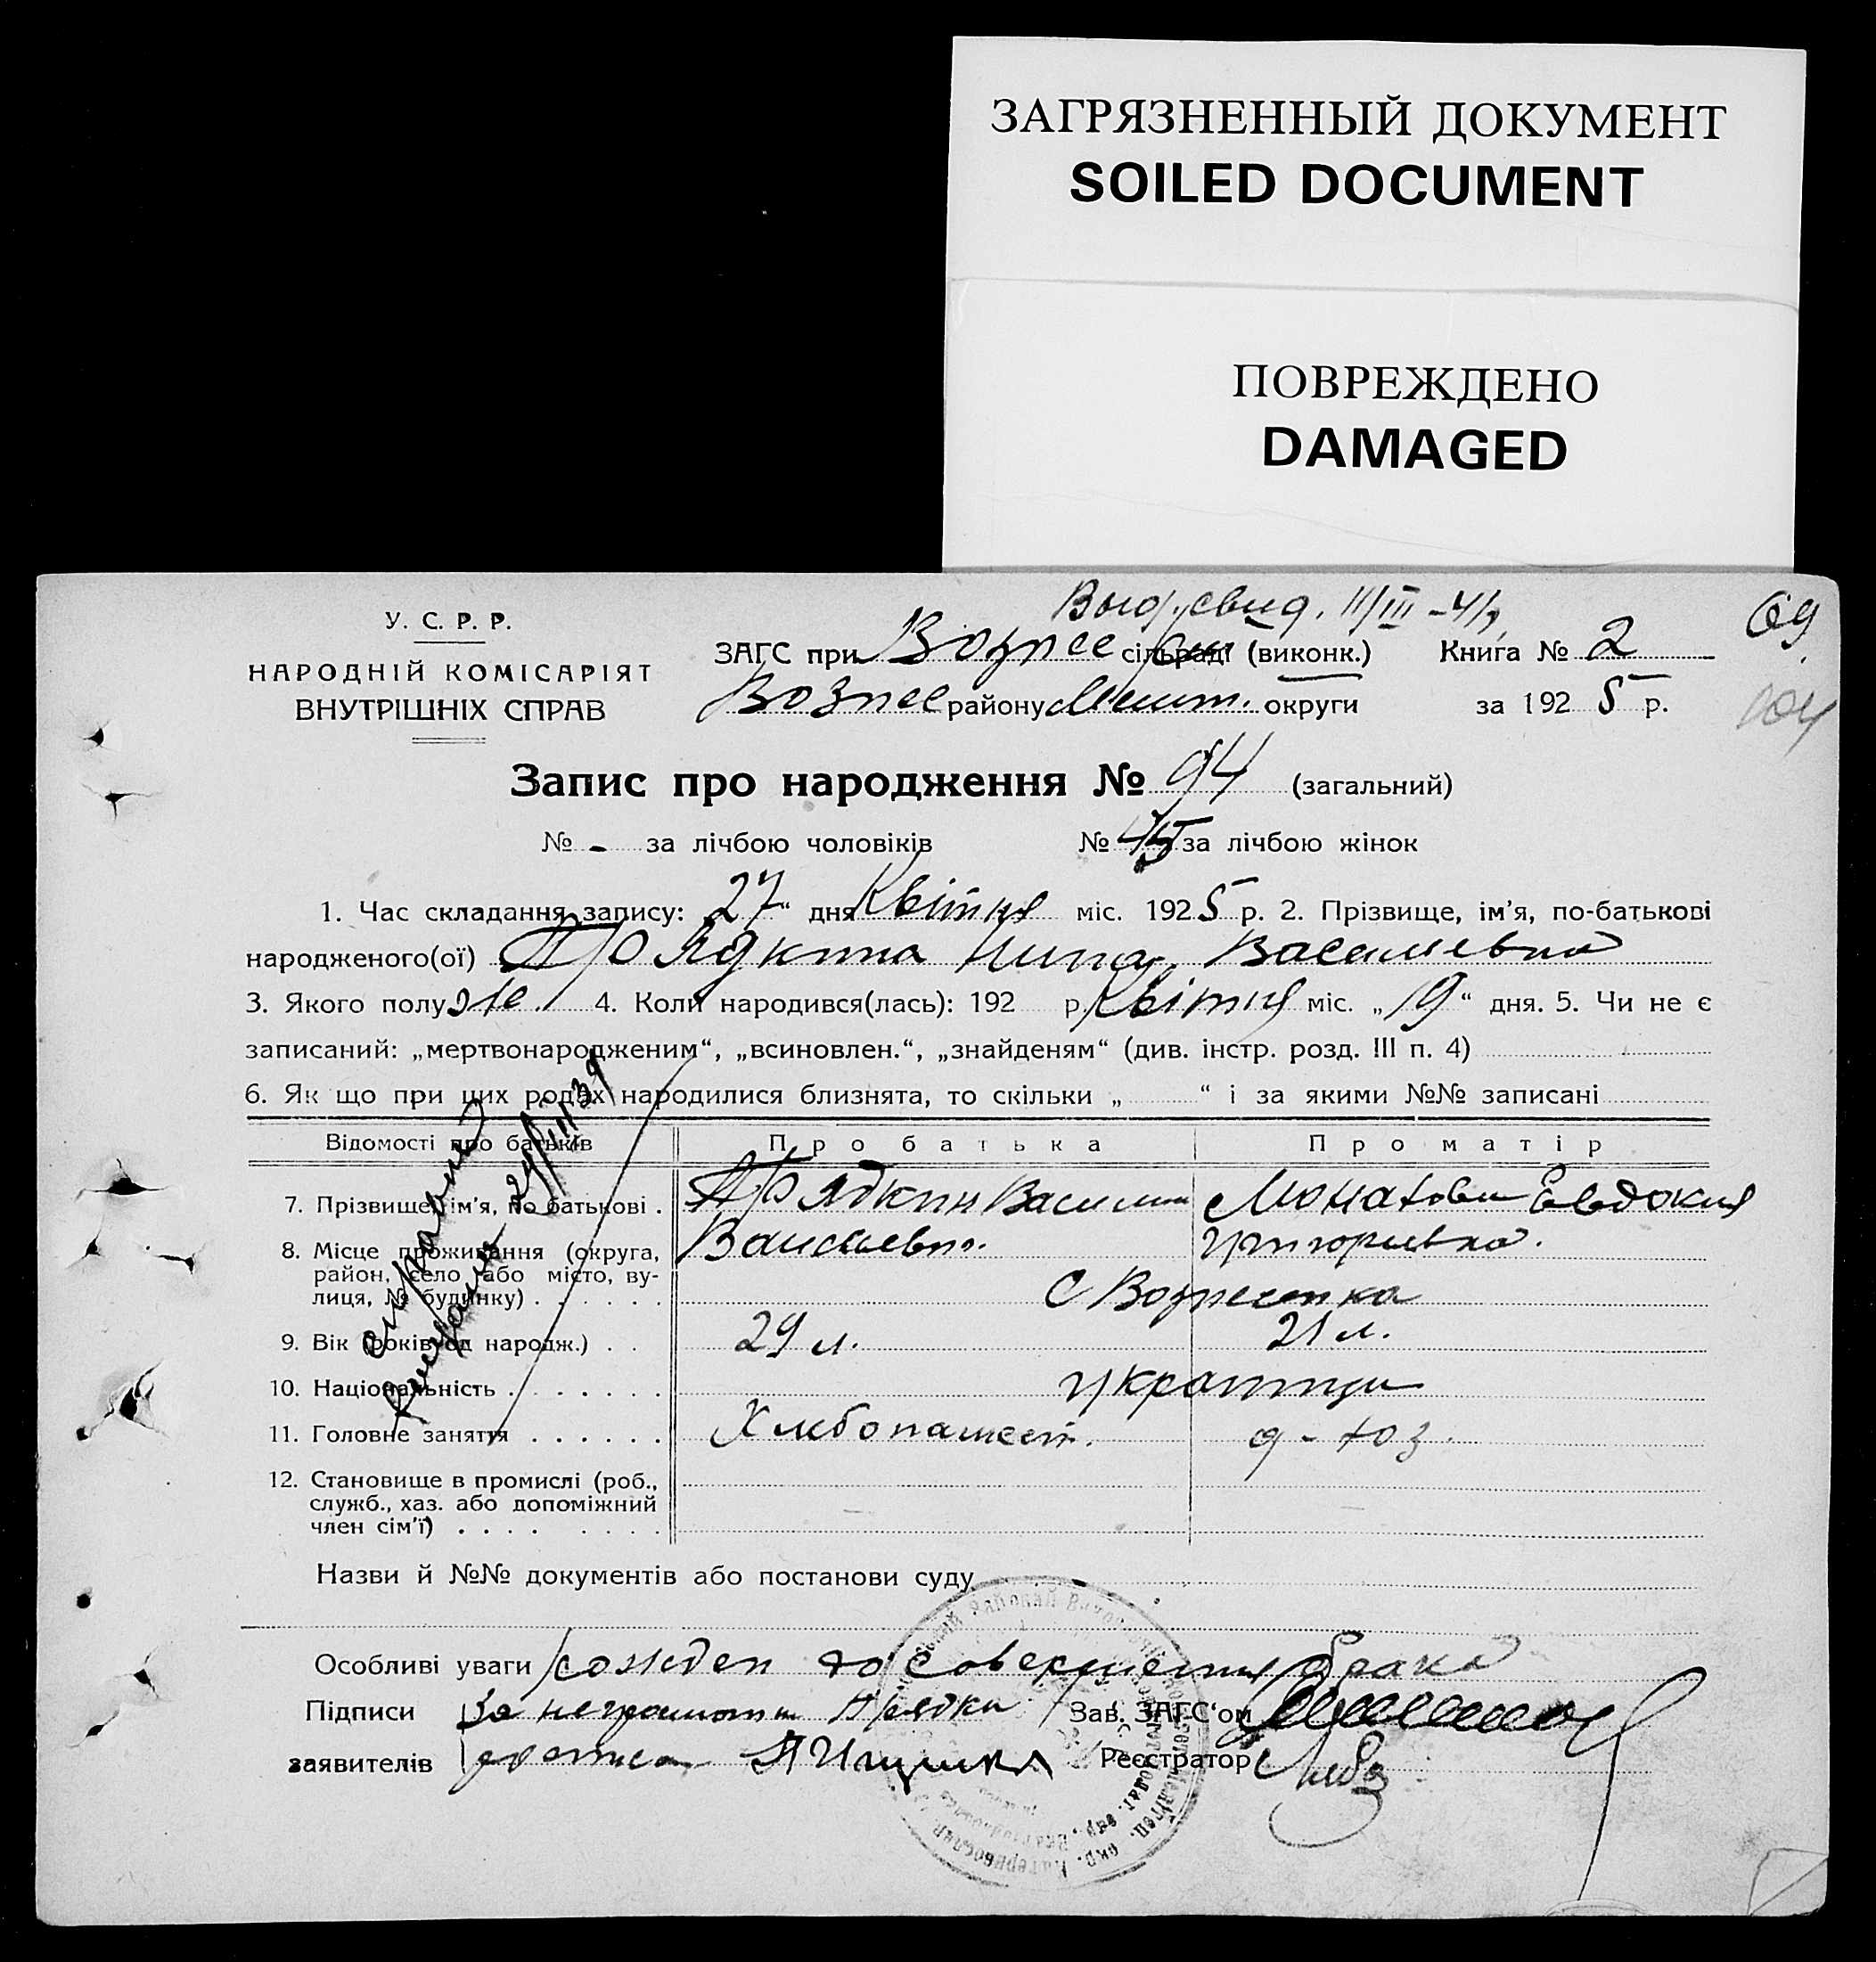 ЗАГРЯЗНЕННЫЙ ДОКУМЕНТ
SOILED DOCUMENT
ПОВРЕЖДЕНО
DAMAGED
69
У. С. Р. Р.
НАРОДНІЙ КОМІСАРІЯТ
ВНУТРІШНІХ СПРАВ
ЗАГС при Вознес сільраді (виконк.) Книга № 2
Вознес району округи за 1925 р.
104
Запис про народження № 94 (загальний)
№ - за лічбою чоловіків № 45 за лічбою жінок
1. Час складання запису: 27 " дня Квітня міс. 1925 р. 2. Прізвище, ім'я, по-батькові
народженого(ої) Нина Василевна
3. Якого полу 4. Коли народився(лась): 192 р. Квітня міс. „ 19 " дня. 5. Чи не є
записаний: „мертвонародженим", „всиновлен.", „знайденям" (див. інстр. розд. III п. 4)
6. Як що при цих родах народилися близнята, то скільки „ " і за якими №№ записані
Відомості про батьків Про батька Про матір
7. Прізвище, ім'я, по батькові . Прядкин Василий Евдокия
Григорьевна.
8. Місце проживання (округа,
район, село або місто, ву-
лиця, № будинку) . . . . . . С Вознесенка
9. Вік (років од народж.) . . 29 л. 21 л.
10. Національність . . . . . . . украинци
11. Головне заняття . . . . . . Хлібопашест. д - хоз.
12. Становище в промислі (роб.,
служб., хаз. або допоміжний
член сім'ї) . . . . . . . .
Назви й №№ документів або постанови суду -
Особливі уваги рожден до совершения брака
Підписи За неграмотн Прядки Зав. ЗАГС'ом
заявителів Реєстратор